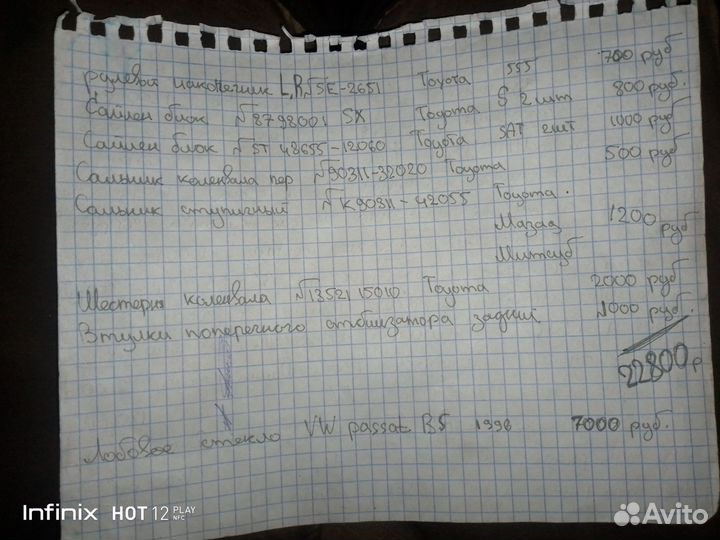 рулевой наконечник L,R №SE-2651 Toyota 555 700 руб
Сайлен блок №8798001 SX Toyota S 2 шт 800 руб.
Сайлен блок №ST 48655-12060 Toyota SAT 2шт 1000 руб
Сальник коленвала пер №90311-32020 Toyota 500 руб
Сальник ступичный №K90311-42055 Toyota.
Мазда 1200 руб
Митсуб
Шестерня коленвала №1352115010 Toyota 2000 руб
Втулки поперечного стбилизатора задний 1000 руб.
22800 р
Лобовое стекло VW passat B5 1996 7000 руб.
Infinix HOT 12 PLAY NFC
Avito